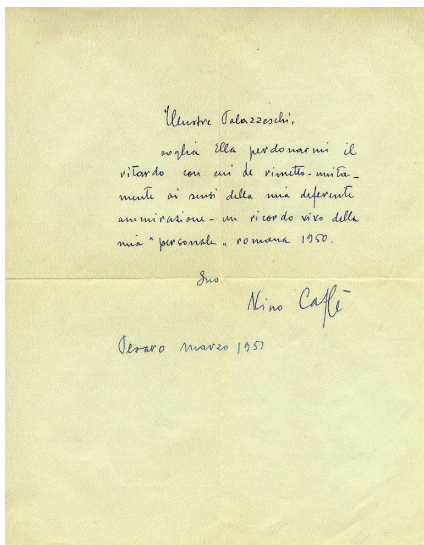 Illustre Palazzeschi,
voglia Ella perdonarmi il
ritardo con cui Le rimetto - unita-
mente ai sensi della mia deferente
ammirazione - un ricordo vivo della
mia "personale" romana 1950.
Suo
Nino Caffè
Pesaro marzo 1951